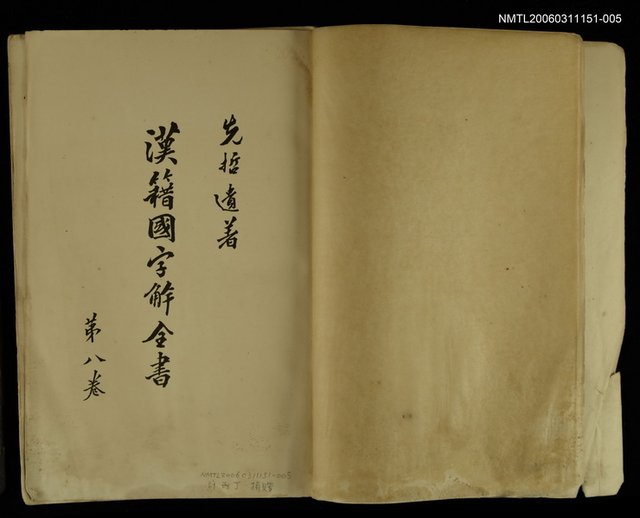 NMTL20060311151-005
先哲遺著
漢籍國字解全書
第八卷
NMTL20060311151-005
許丙丁 捐贈